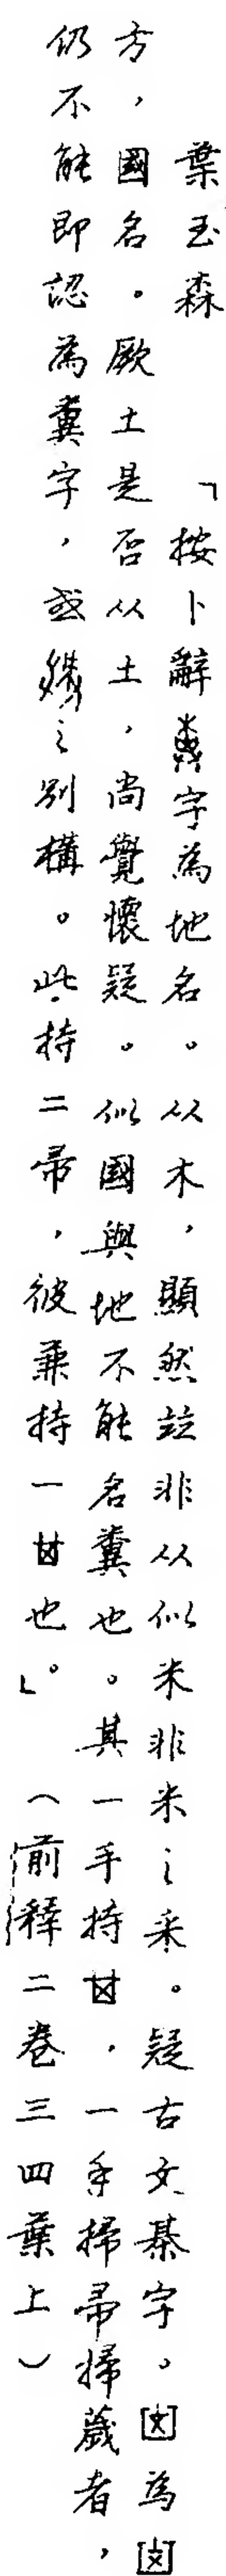 葉玉森　「按卜辭字為地名。从木，顯然竝非从似米非米之釆。疑古文棊字。為
方，國名。厥土是否从土，尚覺懷疑。似國與地不能名糞也。其一手持，一手掃帚掃葳者，
仍不能即認為糞字，或之別構。此持二帚，彼兼持一也」。（前釋二卷三四葉上）